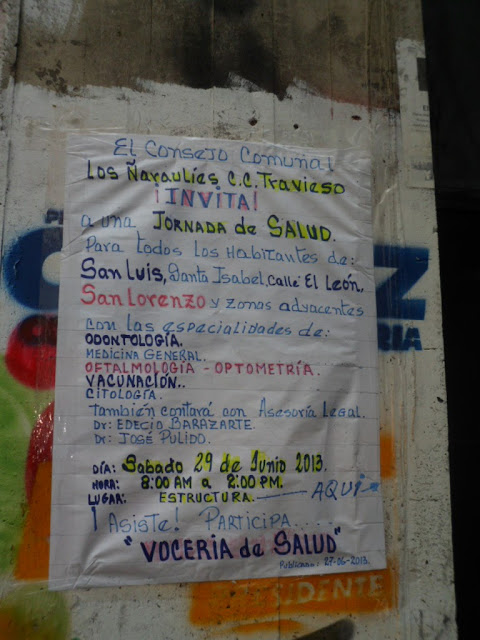 El Consejo Comunal
Los Ñaraulíes C.C. Travieso
¡INVITA!
a una JORNADA de SALUD.
Para todos los Habitantes de:
San Luis, Santa Isabel, Calle El León,
San Lorenzo y zonas adyacentes
con las especialidades de:
ODONTOLOGÍA.
MEDICINA GENERAL.
OFTALMOLOGIA - OPTOMETRÍA.
VACUNACIÓN..
CITOLOGÍA.
también contará con Asesoría Legal.
Dr: EDECIO BARAZARTE.
Dr: JOSÉ PULIDO.
DÍA: Sabado 29 de Junio 2013.
HORA: 8:00 AM a 2:00 PM.
LUGAR: ESTRUCTURA. AQUI
¡Asiste! Participa.....
"VOCERIA de SALUD"
Publicano: 27-06-2013.